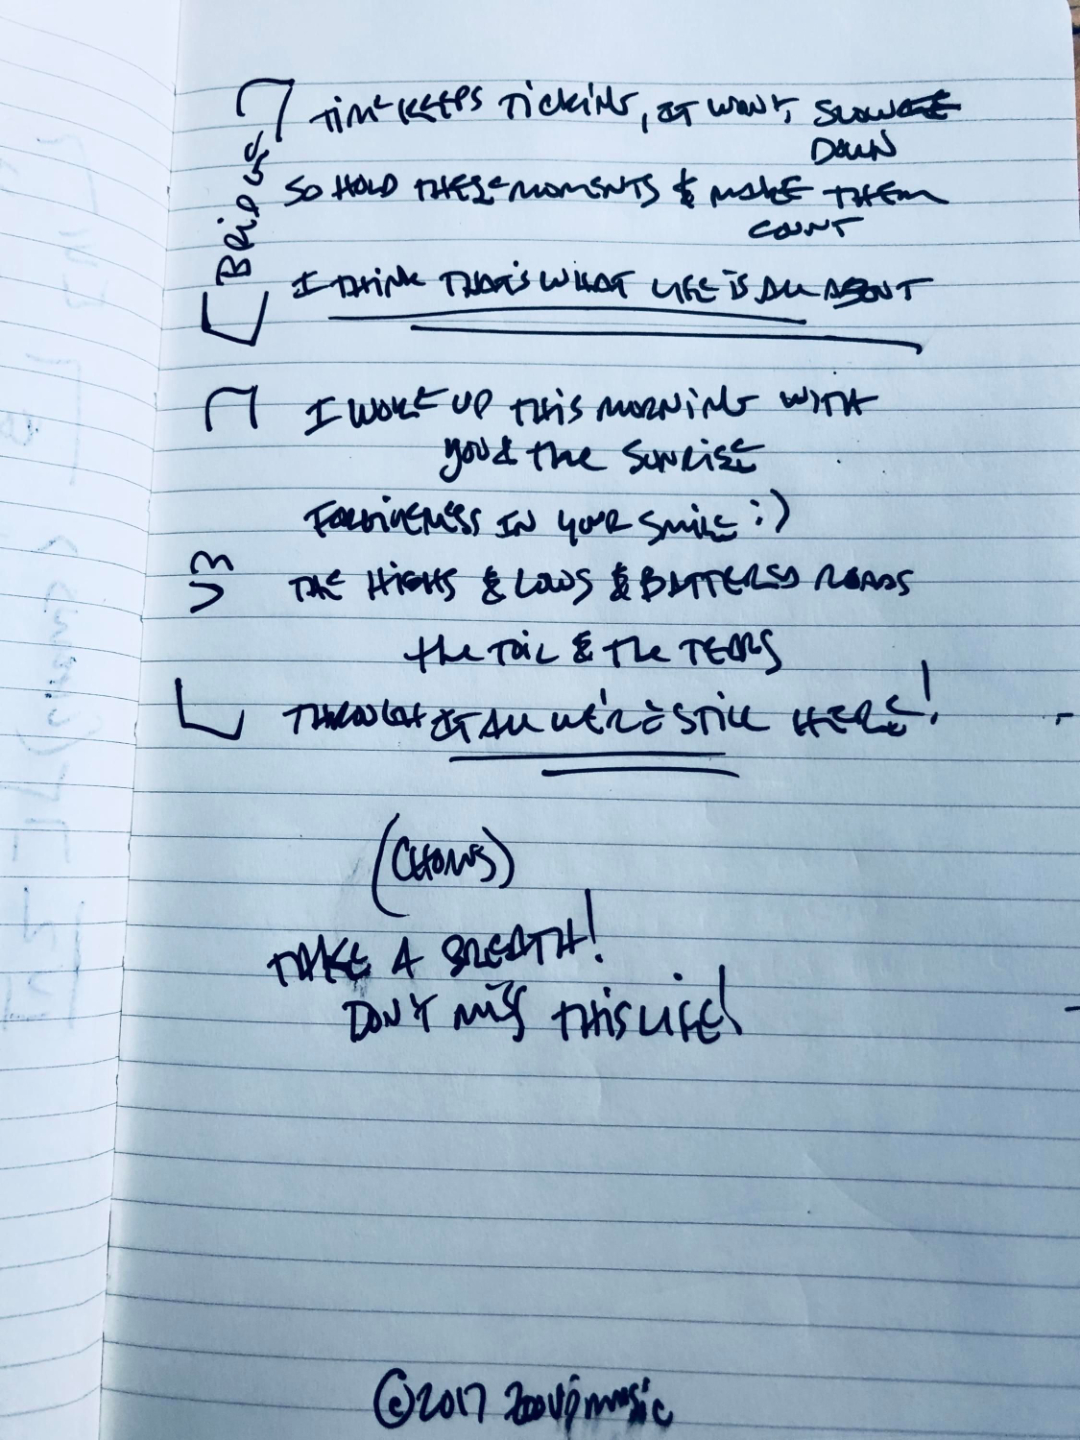 Bridge
TIME KEEPS TICKING, IT WON'T SLOW
DOWN
SO HOLD THESE MOMENTS & MAKE THEM
COUNT
I THINK THAT'S WHAT LIFE IS ALL ABOUT
V3
I WOKE UP THIS MORNING WITH
you & the SUNRISE
FORGIVENESS IN YOUR SMILE :)
THE HIGHS & LOWS & BATTERED ROADS
the TOIL & the TEARS
THROUGH IT ALL WE'RE STILL HERE!
(CHORUS)
TAKE A BREATH!
DON'T MISS THIS LIFE!
©2017 music